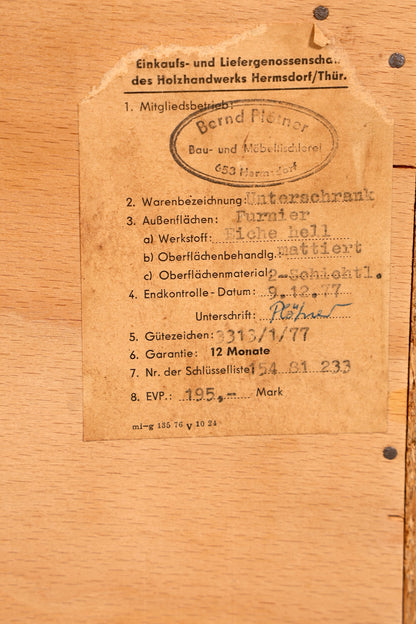 Einkaufs- und Liefergenossenscha
des Holzhandwerks Hermsdorf/Thür.
1. Mitgliedsbetrieb:
Bernd Plötner
Bau- und Möbeltischlerei
653 Hermsdorf
2. Warenbezeichnung: Unterschrank
3. Außenflächen: Furnier
a) Werkstoff: Eiche hell
b) Oberflächenbehandlg.: mattiert
c) Oberflächenmaterial: 2-Schichtl.
4. Endkontrolle - Datum: 9.12.77
Unterschrift: Plötner
5. Gütezeichen: 3313/1/77
6. Garantie: 12 Monate
7. Nr. der Schlüsselliste: 154 81 233
8. EVP.: 195,- Mark
mi-g 135 76 V 10 24